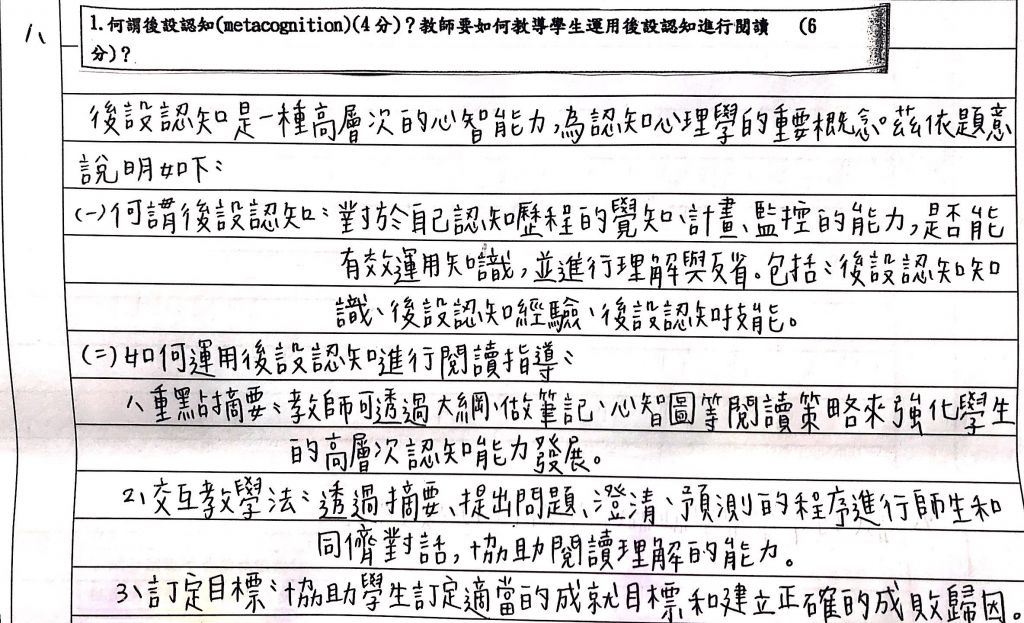 1、
1.何謂後設認知(metacognition)(4分)?教師要如何教導學生運用後設認知進行閱讀 (6
分)?
後設認知是一種高層次的心智能力,為認知心理學的重要概念。茲依題意
說明如下:
(一)何謂後設認知:對於自己認知歷程的覺知、計畫、監控的能力,是否能
有效運用知識,並進行理解與反省。包括:後設認知知
識、後設認知經驗、後設認知技能。
(二)如何運用後設認知進行閱讀指導:
1、重點摘要:教師可透過大綱、做筆記、心智圖等閱讀策略來強化學生
的高層次認知能力發展。
2、交互教學法:透過摘要、提出問題、澄清、預測的程序進行師生和
同儕對話,協助閱讀理解的能力。
3、訂定目標:協助學生訂定適當的成就目標和建立正確的成敗歸因。